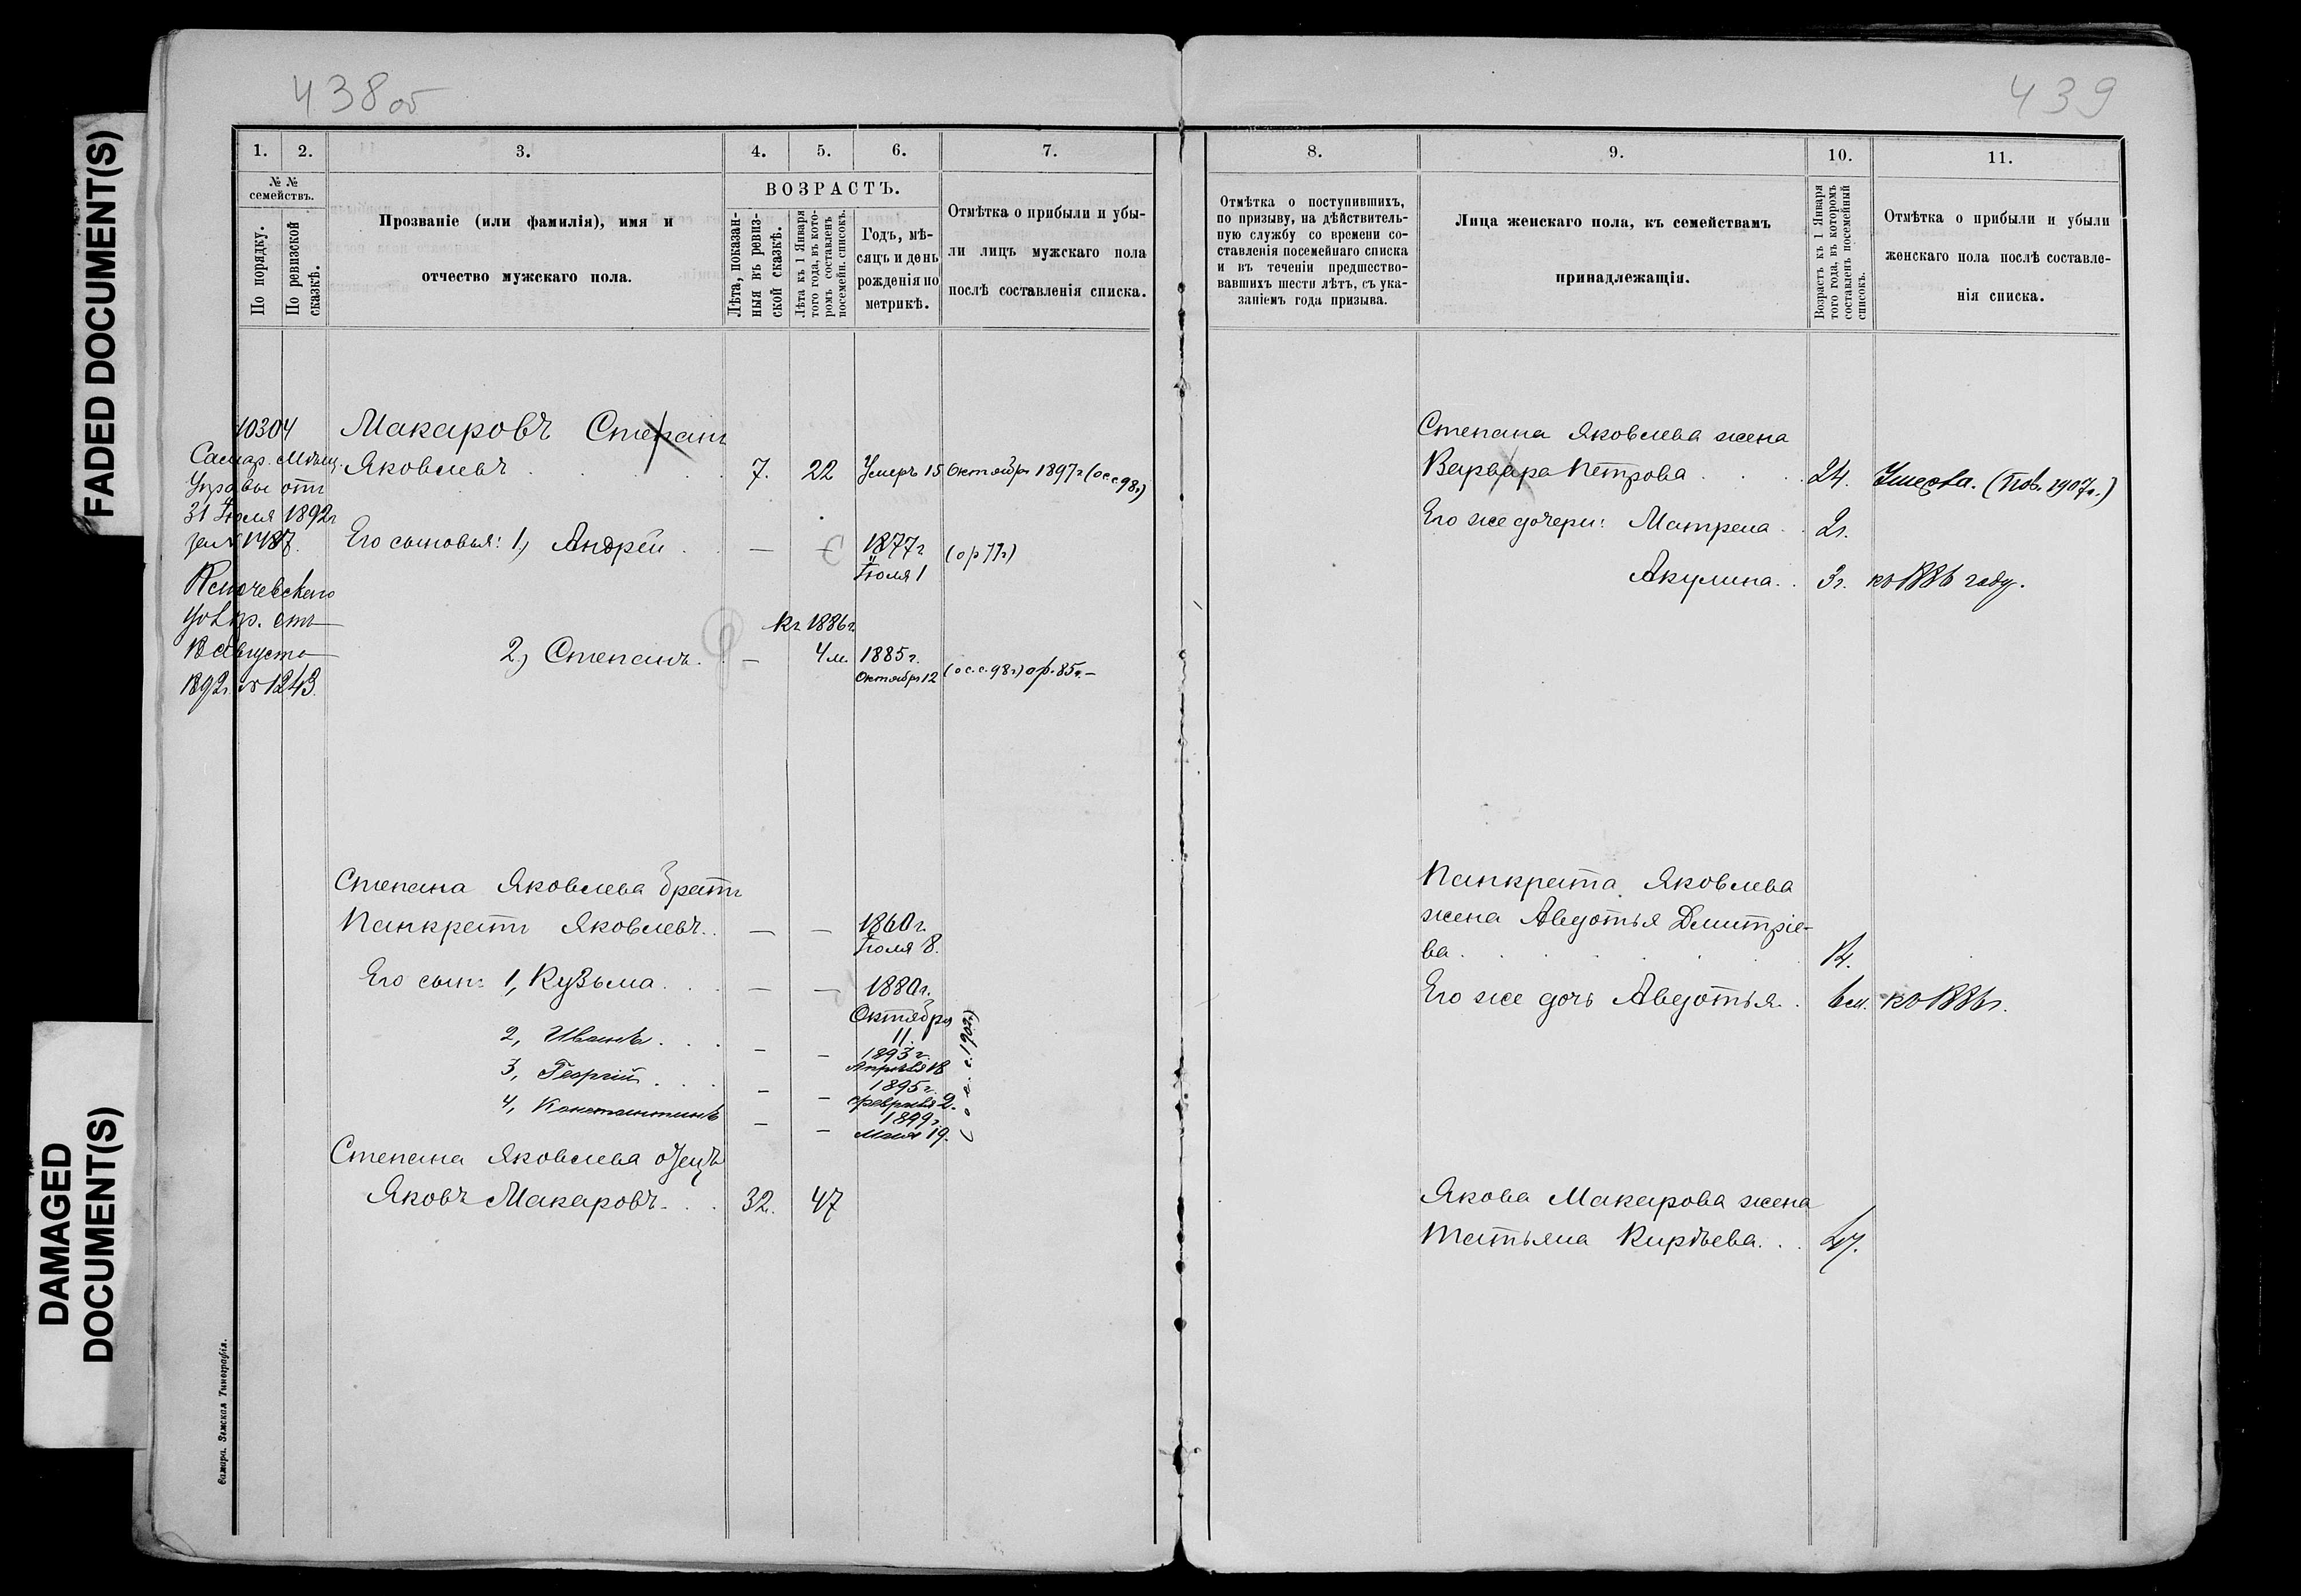 438об
1.
2.
3.
4.
5.
6.
7.
№ №
семействъ.
По порядку.
По ревизской
сказкѣ.
Прозваніе (или фамилія), имя и
отчество мужскаго пола.
ВОЗРАСТЪ.
Лѣта, показан-
ныя въ ревиз-
ской сказкѣ.
Лѣта къ 1 Января
того года, въ кото-
ромъ составленъ
посемейн. списокъ.
Годъ, мѣ-
сяцъ и день
рожденія по
метрикѣ.
Отмѣтка о прибыли и убы-
ли лицъ мужскаго пола
послѣ составленія списка.
10304
Самар. Мѣщ.
Управы отъ
31 Іюля 1892г
за № 1487.
18 Августа
1892г. № 1243.
Макаровъ Степанъ
Яковлевъ . . . 7. 22 Умеръ 15 Октября 1897г (ос.с.98г)
Его сыновья: 1, Андрей . — 1877г
Іюля 1
Къ 1886г.
2, Степанъ. . — 4м. 1885г.
Октября 12 (ос.с.98г) ор.85г.—
Степана Яковлева братъ
Панкратъ Яковлевъ. . — — 1860г.
Іюля 8.
Его сын: 1, Кузьма . . . — — 1880г.
Октября
11.
2, Иванъ . . . — — 1893г.
Апрѣля 18
3, Георгій . . . — — 1895г.
февраля 2.
4, Константинъ — — 1899г.
Мая 19.
Степана Яковлева отецъ
Яковъ Макаровъ. . . 32. 47
Самара. Земская Типографія.
439
8.
9.
10.
11.
Отмѣтка о поступившихъ,
по призыву, на дѣйствитель-
ную службу со времени со-
ставленія посемейнаго списка
и въ теченіи предшество-
вавшихъ шести лѣтъ, съ ука-
заніемъ года призыва.
Лица женскаго пола, къ семействамъ
принадлежащія.
Возрастъ къ 1 Января
того года, въ которомъ
составленъ посемейный
списокъ.
Отмѣтка о прибыли и убыли
женскаго пола послѣ составле-
нія списка.
Степана Яковлева жена
Варвара Петрова . . . 24. Умерла. (пов. 1907г.)
Его же дочери: Матрена . . 2г.
Акулина. . 3г. къ 1886 году.
Панкрата Яковлева
жена Авдотья Дмитріе-
ва . . . . . .
Его же дочь Авдотья . . 6м. къ 1886г.
Якова Макарова жена
Татьяна Кирѣева. . . 47.
FADED DOCUMENT(S)
DAMAGED
DOCUMENT(S)